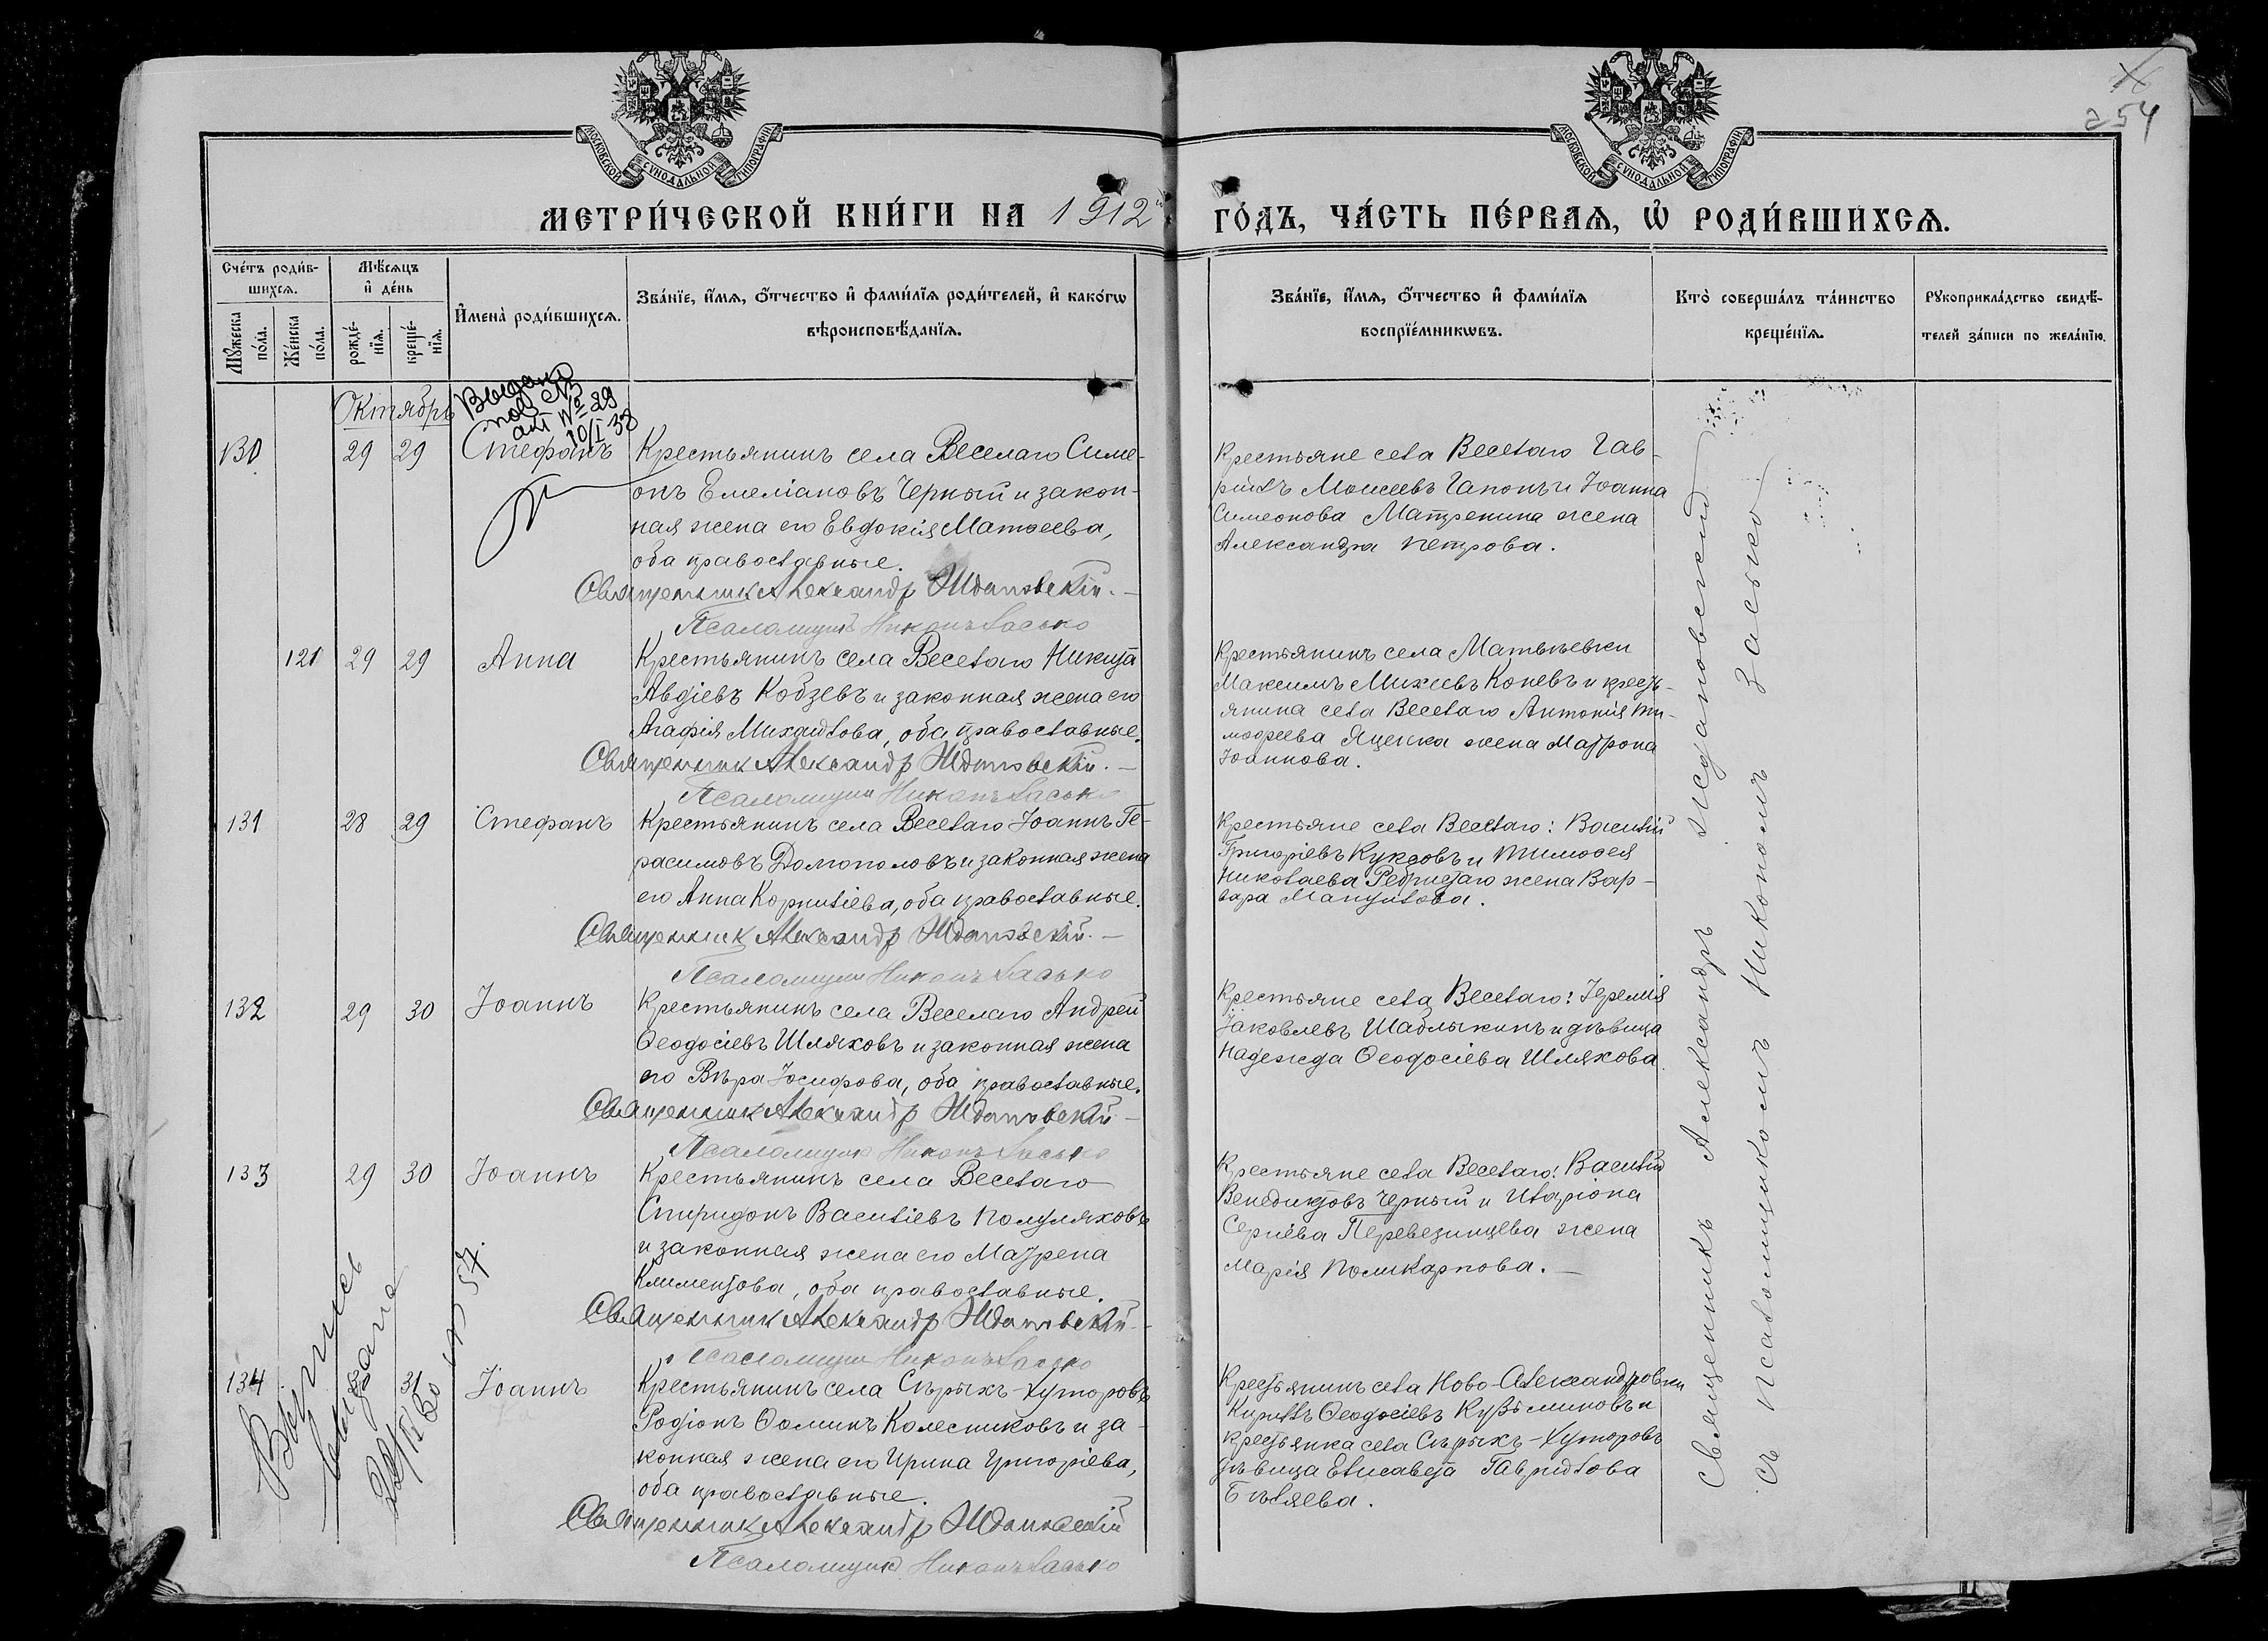 Х
254
МОСКОВСКОЙ СѴНОДАЛЬНОЙ ТИПОГРАФІИ
МОСКОВСКОЙ СѴНОДАЛЬНОЙ ТИПОГРАФІИ
МЕТРИ́ЧЕСКОЙ КНИ́ГИ НА 1912й
ГО́ДЪ, ЧА́СТЬ ПЕ́РВАѦ, Ѡ҆ РОДИ́ВШИХСѦ.
Сче́тъ роди́в-
шихсѧ.
Мꙋ́жеска по́ла.
Же́нска по́ла.
Мѣ́сѧцъ
и҆ де́нь
рожде́-
нїѧ.
креще́-
нїѧ.
И҆мена̀ роди́вшихсѧ.
Зва́нїе, и҆́мѧ, ѻ҆́тчество и҆ фами́лїѧ роди́телей, и҆ како́гѡ
вѣроисповѣ́данїѧ.
Зва́нїе, и҆́мѧ, ѻ҆́тчество и҆ фами́лїѧ
воспрїе́мникѡвъ.
Кто̀ соверша́лъ та́инство
креще́нїѧ.
Рꙋкоприкла́дство свидѣ́-
телей за́писи по жела́нїю.
Октябрь
Выдано
акт № 29
10/I 38
130 29 29 Стефанъ
Крестьянинъ села Веселаго Симе-
онъ Емеліановъ Черный и закон-
ная жена его Евдокія Матѳеева,
оба православные.
Священник Александр Ждановскій.
Псаломщикъ Никонъ Засько
Крестьяне села Веселаго Гав-
рiилъ Моисеевъ Гапонъ и Іоанна
Симеонова Матренина жена
Александра Петрова.
121 29 29 Анна
Крестьянинъ села Веселаго Никита
Авдіевъ Кобзевъ и законная жена его
Агафія Михаилова, оба православные.
Священник Александр Ждановскій.
Псаломщик Никонъ Засько
Крестьянинъ села Матвѣевки
Максимъ Михеевъ Коневъ и кресть-
янина села Веселаго Антонія Ти-
моѳеева Яценка жена Матрона
Іоаннова.
131 28 29 Стефанъ
Крестьянинъ села Веселаго Іоаннъ Ге-
расимовъ Домополовъ и законная жена
его Анна Корниліева, оба православные.
Священник Александр Ждановскій.
Псаломщик Никонъ Засько
Крестьяне села Веселаго: Василій
Григоріевъ Куксовъ и Тимоѳея
Николаева жена Вар-
вара Мануилова.
132 29 30 Іоаннъ
Крестьянинъ села Веселаго Андрей
Ѳеодосіевъ Шляховъ и законная жена
его Вѣра Іосифова, оба православные.
Священник Александр Ждановскій
Псаломщик Никонъ Засько
Крестьяне села Веселаго: Іеремія
Іаковлевъ Шаблыкинъ и дѣвица
Надежда Ѳеодосіева Шляхова.
133 29 30 Іоаннъ
Крестьянинъ села Веселаго
Спиридонъ Василіевъ Полуляховъ
и законная жена его Матрена
Климентова, оба православные.
Священник Александр Ждановскій
Псаломщик Никонъ Засько
Крестьяне села Веселаго: Василій
Венедиктовъ Черный и Иларіона
Сергіева Перевезинцева жена
Марія Поликарпова.
134 31 Іоаннъ
Крестьянинъ села Сѣрыхъ-Хуторовъ
Родіонъ Ѳоминъ Колесниковъ и за-
конная жена его Ирина Григоріева,
оба православные.
Священник Александр Ждановскій
Псаломщик Никонъ Засько
Крестьянинъ села Ново-Александровки
Кириллъ Ѳеодосіевъ Кузьминовъ и
крестьянка села Сѣрыхъ-Хуторовъ
дѣвица Елисавета Гавриілова
Бѣляева.
Выпись
выдана
Священникъ Александръ Ждановскій
съ псаломщикомъ Никономъ Засько